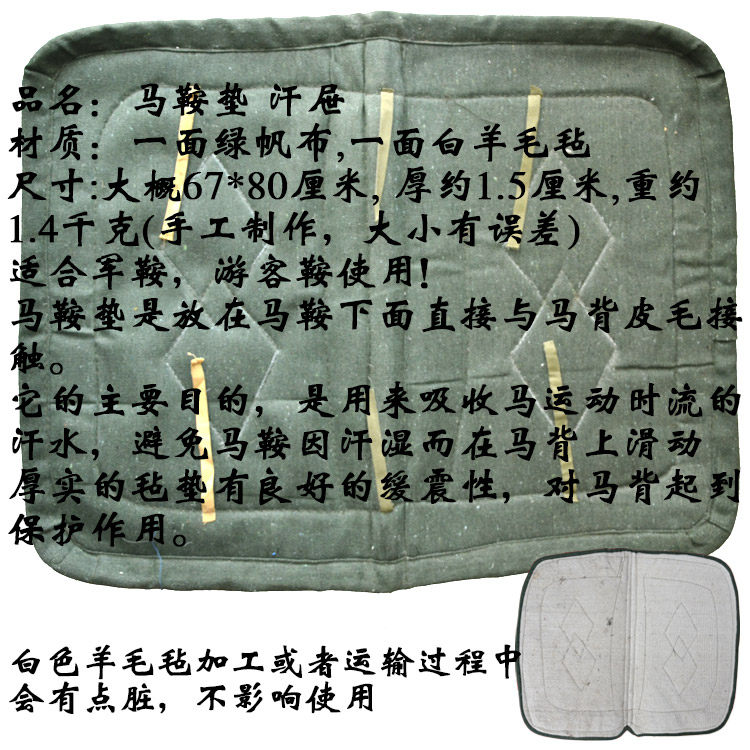 品名：马鞍垫 汗屉
材质：一面绿帆布,一面白羊毛毡
尺寸:大概67*80厘米, 厚约1.5厘米,重约
1.4千克(手工制作，大小有误差)
适合军鞍，游客鞍使用!
马鞍垫是放在马鞍下面直接与马背皮毛接
触。
它的主要目的，是用来吸收马运动时流的
汗水，避免马鞍因汗湿而在马背上滑动
厚实的毡垫有良好的缓震性，对马背起到
保护作用。
白色羊毛毡加工或者运输过程中
会有点脏，不影响使用